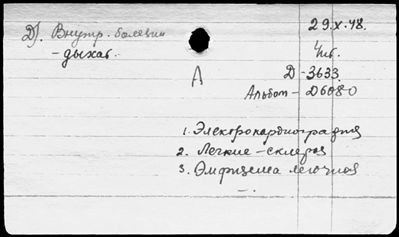 Д). Внутр. болезни
- дыхат.
29.X.48.
Чит.
А
Д-3633
Альбом - Д6080
1. Электрокардиография
2. Легкие - склероз
3. Эмфизема легочная